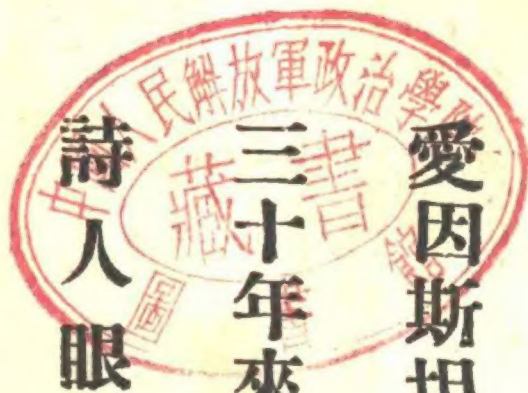 愛因斯坦
三十年來
詩人眼
人民解放軍政治學
藏書
圖